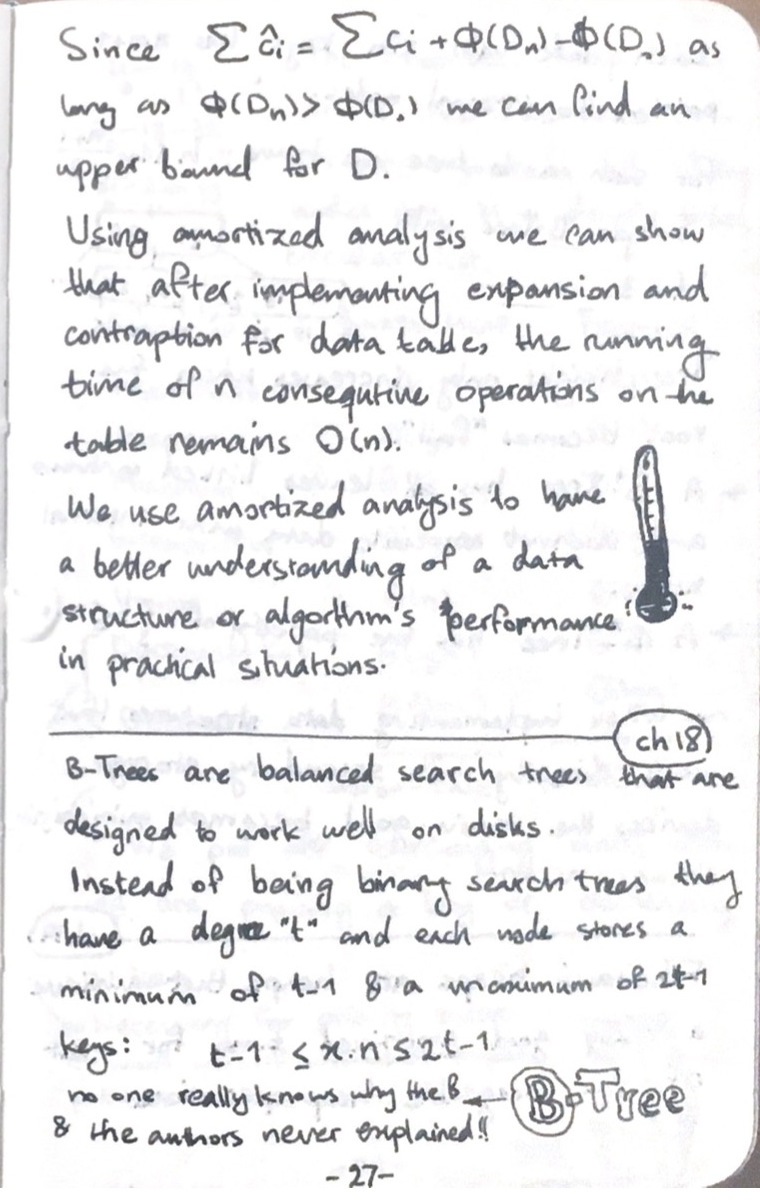 Since ∑ĉi = ∑ci + Φ(Dn) - Φ(D₀) as
long as Φ(Dn) > Φ(D₀) we can find an
upper bound for D.
Using amortized analysis we can show
that after implementing expansion and
contraption for data table, the running
time of n consequtive operations on the
table remains O(n).
We use amortized analysis to have
a better understanding of a data
structure or algorthm's performance
in practical situations.
ch 18
B-Trees are balanced search trees that are
designed to work well on disks.
Instead of being binary search trees they
have a degree "t" and each node stores a
minimum of t-1 & a maximum of 2t-1
keys: t-1 ≤ x.n ≤ 2t-1
no one really knows why the B ← B-Tree
& the authors never explained!!
-27-